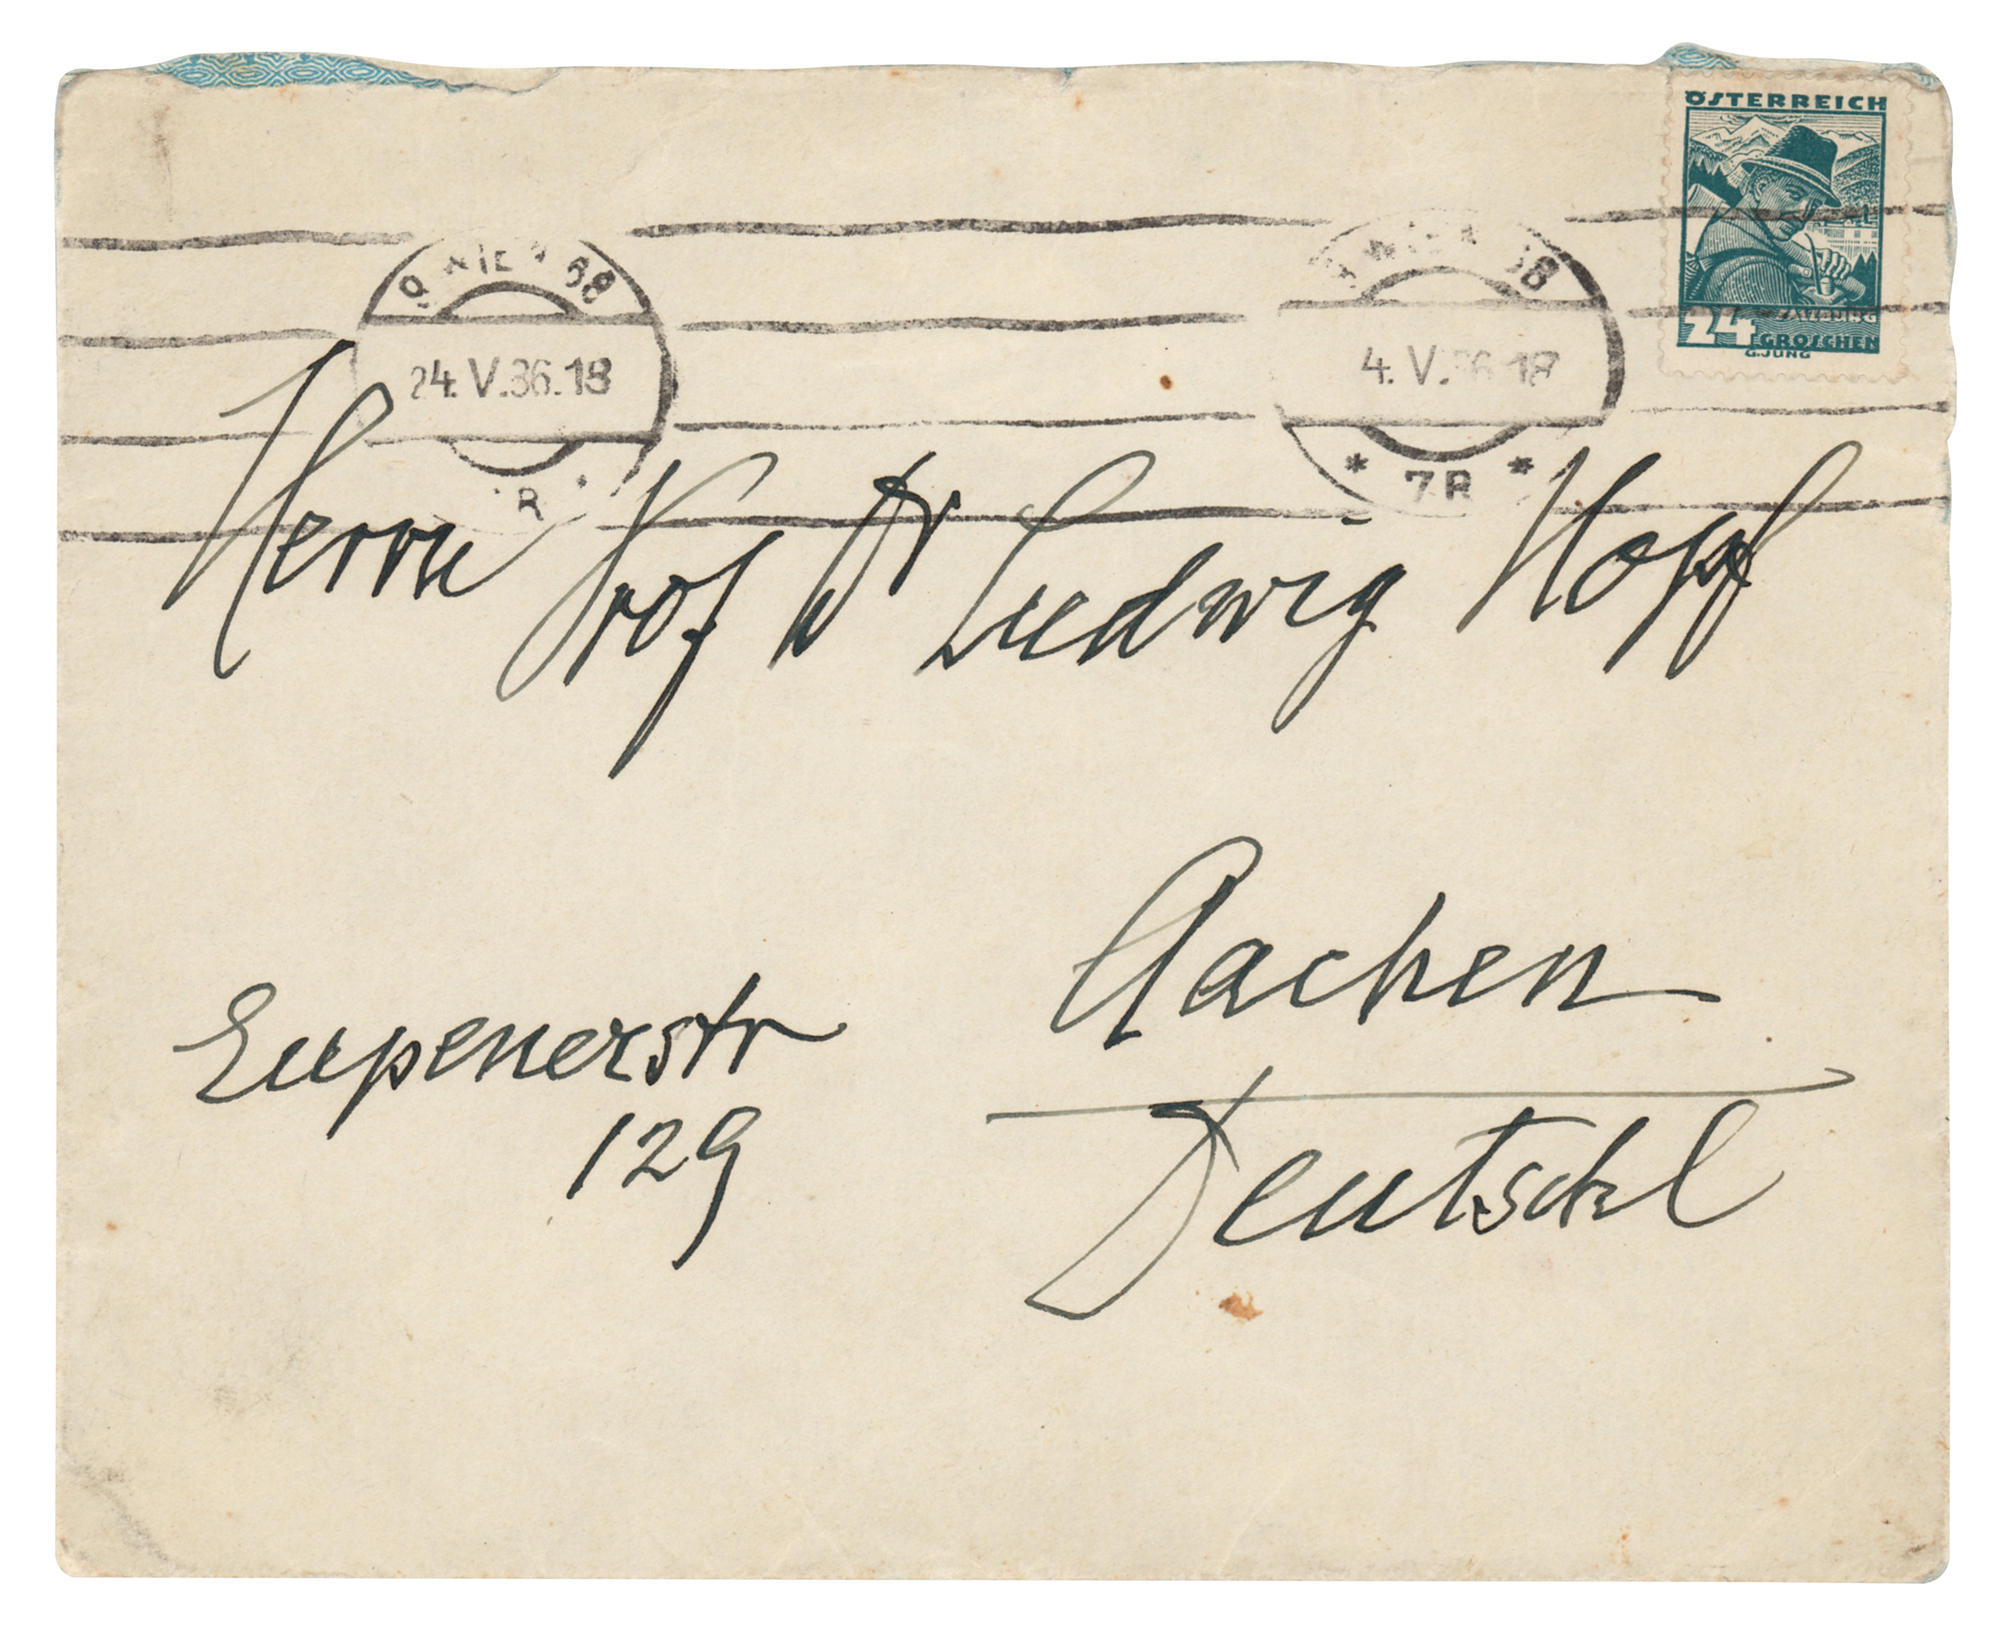 ÖSTERREICH
SALZBURG
24 GROSCHEN
G.JUNG
9 * WIEN 68
24.V.36.18
* 7B *
Herrn Prof Dr Ludwig Hopf
Aachen
Eupenerstr
129
Deutschl